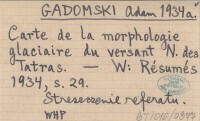 GADOMSKI Adam 1934a.
Carte de la morphologie
glaciaire du versant N. des
Tatras. — W: Résumés
1934, s. 29.
Streszczenie referatu.
WHP